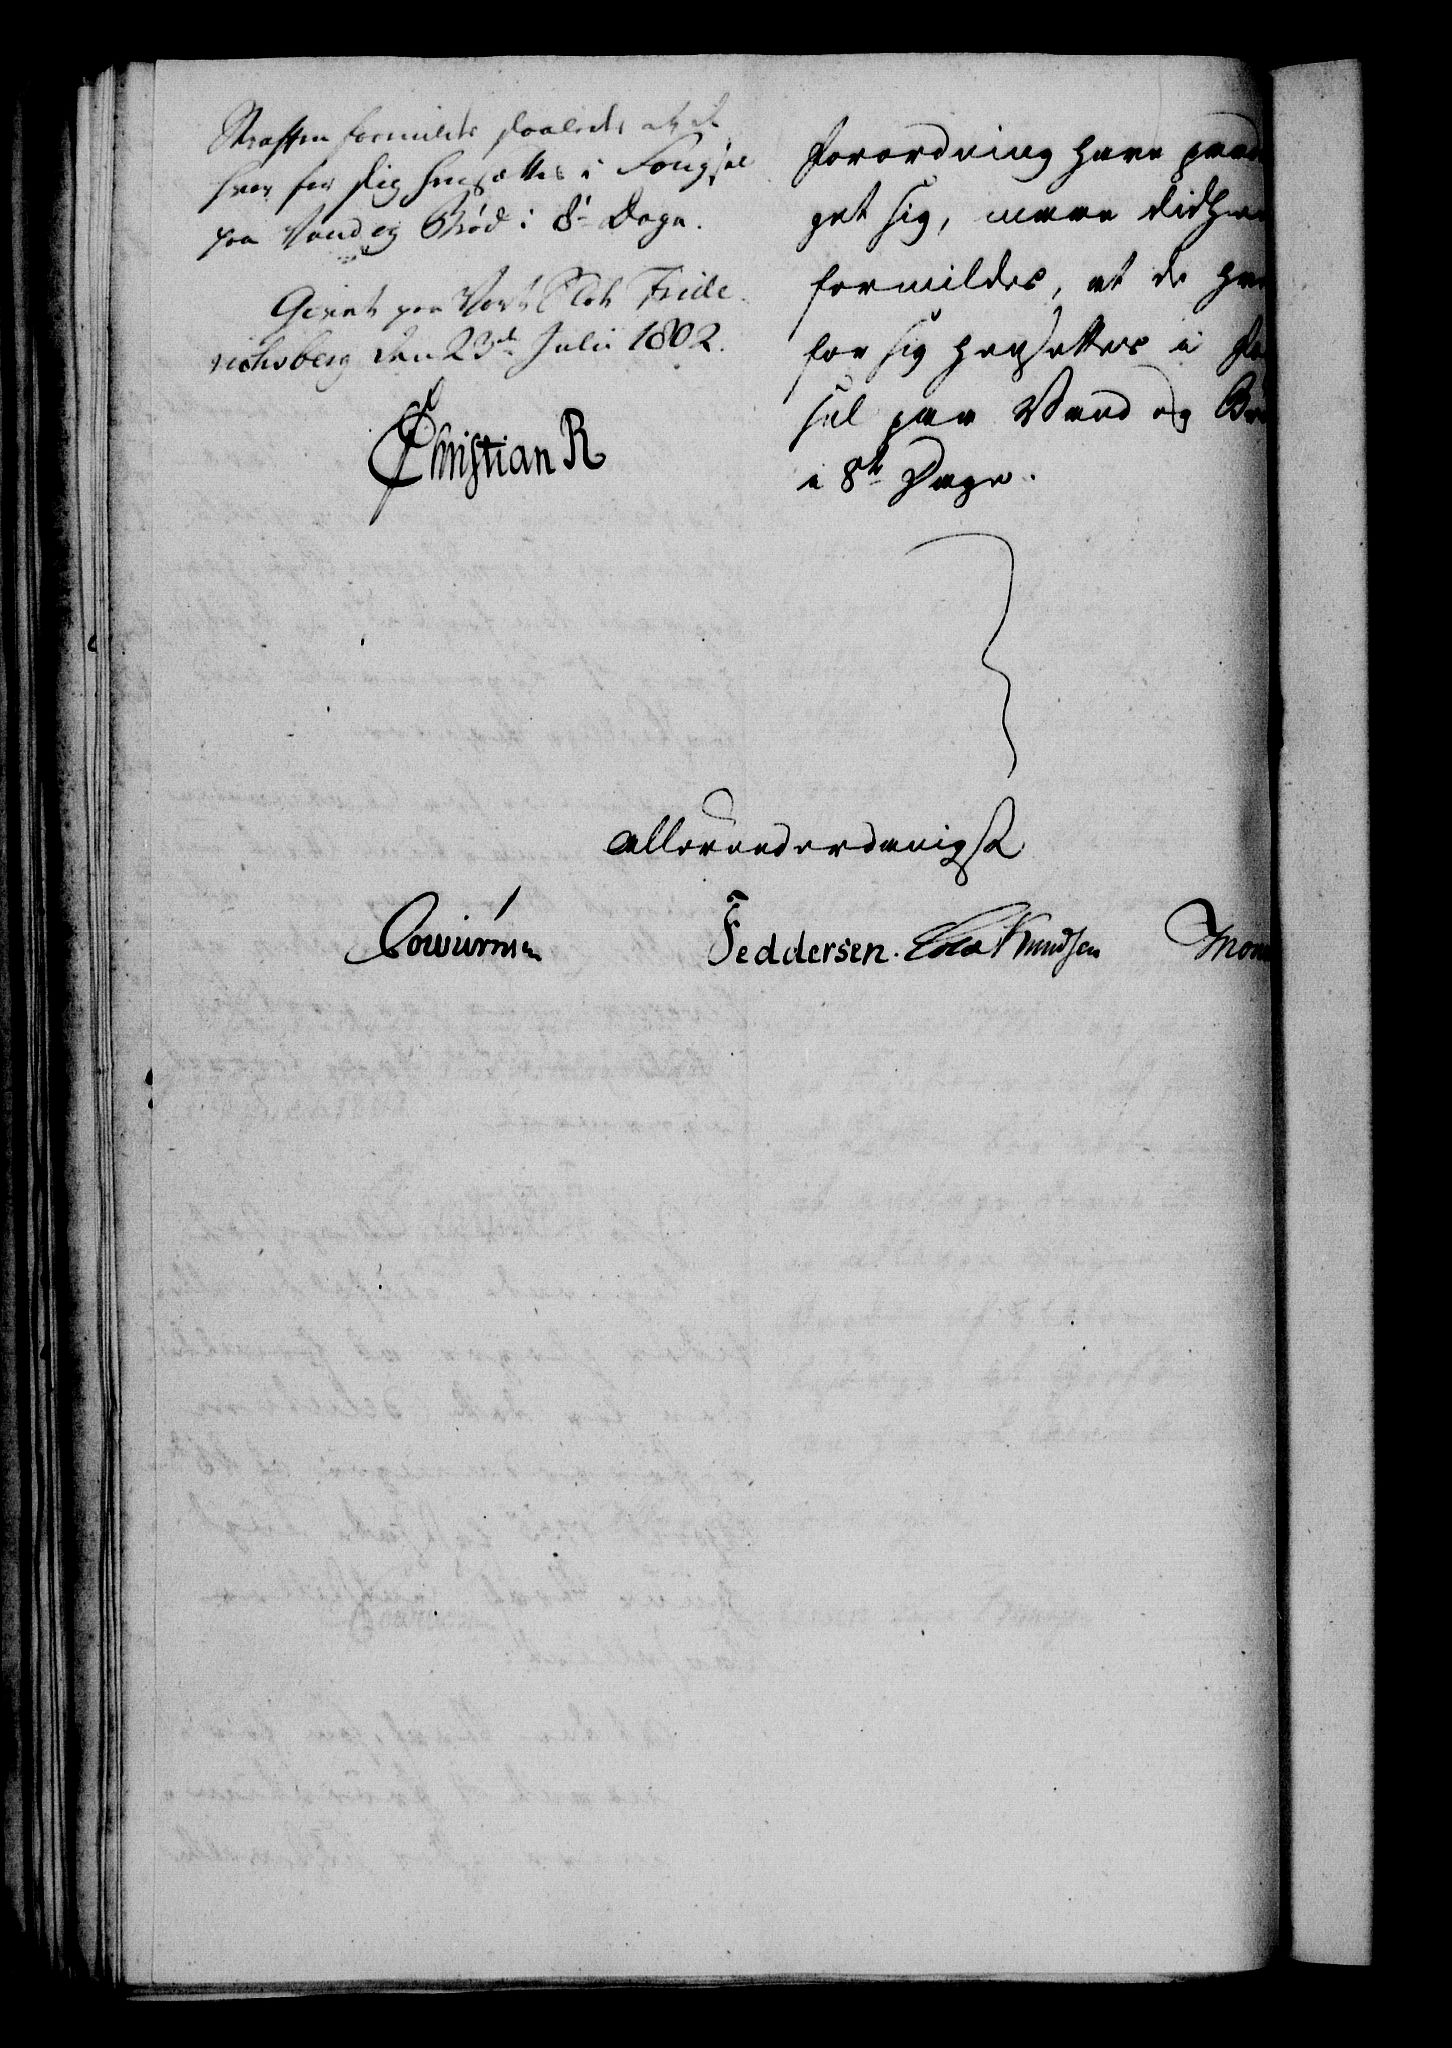 Straffen formildes saaledes at de
hver for sig hensættes i Fængsel
paa Vand og Brød i 8te Dage.
Givet paa Vort Slot Fride-
richsberg den 23de Julii 1802.
Christian R
Forordning have
get sig, maae
formildes, at de
for sig hensættes i
sel paa Vand og
i 8te Dage.
allerunderdanigst
Feddersen. Knudsen